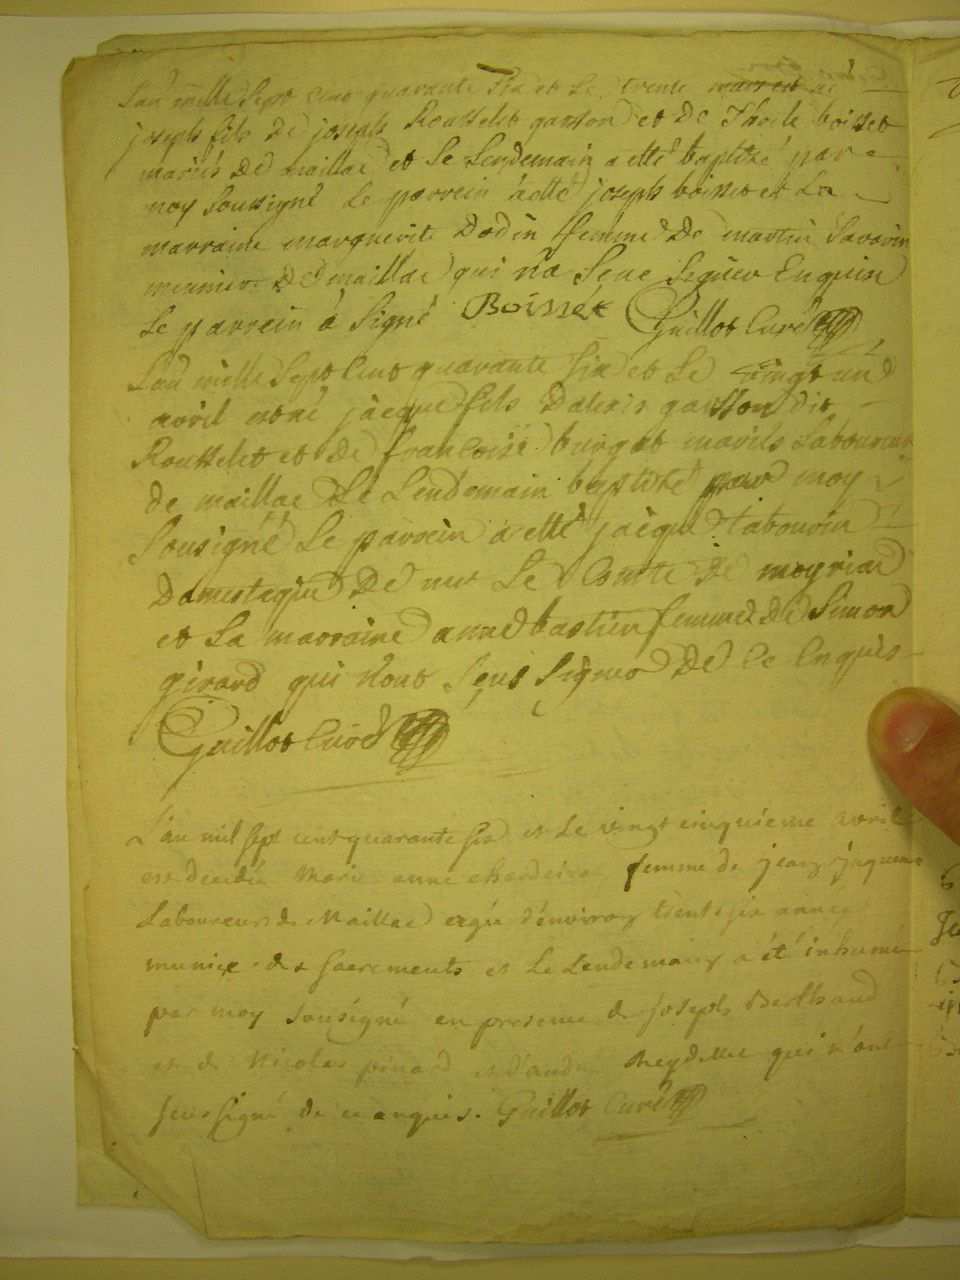 L'an mille Sept Cent quarante Six et Le trente mars est né
joseph fils de joseph Rousselet garson et de boisset
mariés De maillac et Le Lendemain a etté baptizé par
moy Soussigné Le parrein a etté joseph boisset et La
marraine marguerite Dodin femme De martin Savarin
meunier De maillac qui n'a Seue Signer Enquise
Le parrein à Signé Boisset Guillot Curé
L'an mille Sept Cent quarante Six et Le vingt un
avril est né jacque fils D'alexis garsson dit
Rousselet et de francoise burgat mariés Laboureur
de maillac Le Lendemain baptizé par moy
Sousigné Le parrein a etté jàcque tabourin
Domestique De mr Le Comte de moyria
et La marraine anne bastien femme de Simon
girard qui n'ont Seus Signer De Ce Enquis
Guillot Curé
L'an mil Sept cent quarante six et Le vingt cinquieme avril
est decedée Marie anne femme de jean
Laboureur de Maillac agée d'environ trente six années
munie des Sacrements et Le Lendemain a été inhumée
par moy sousigné en presence de joseph Berthaud
et de Nicolas pinard et d'andré qui n'ont
Seus Signé de ce enquis. Guillot Curé